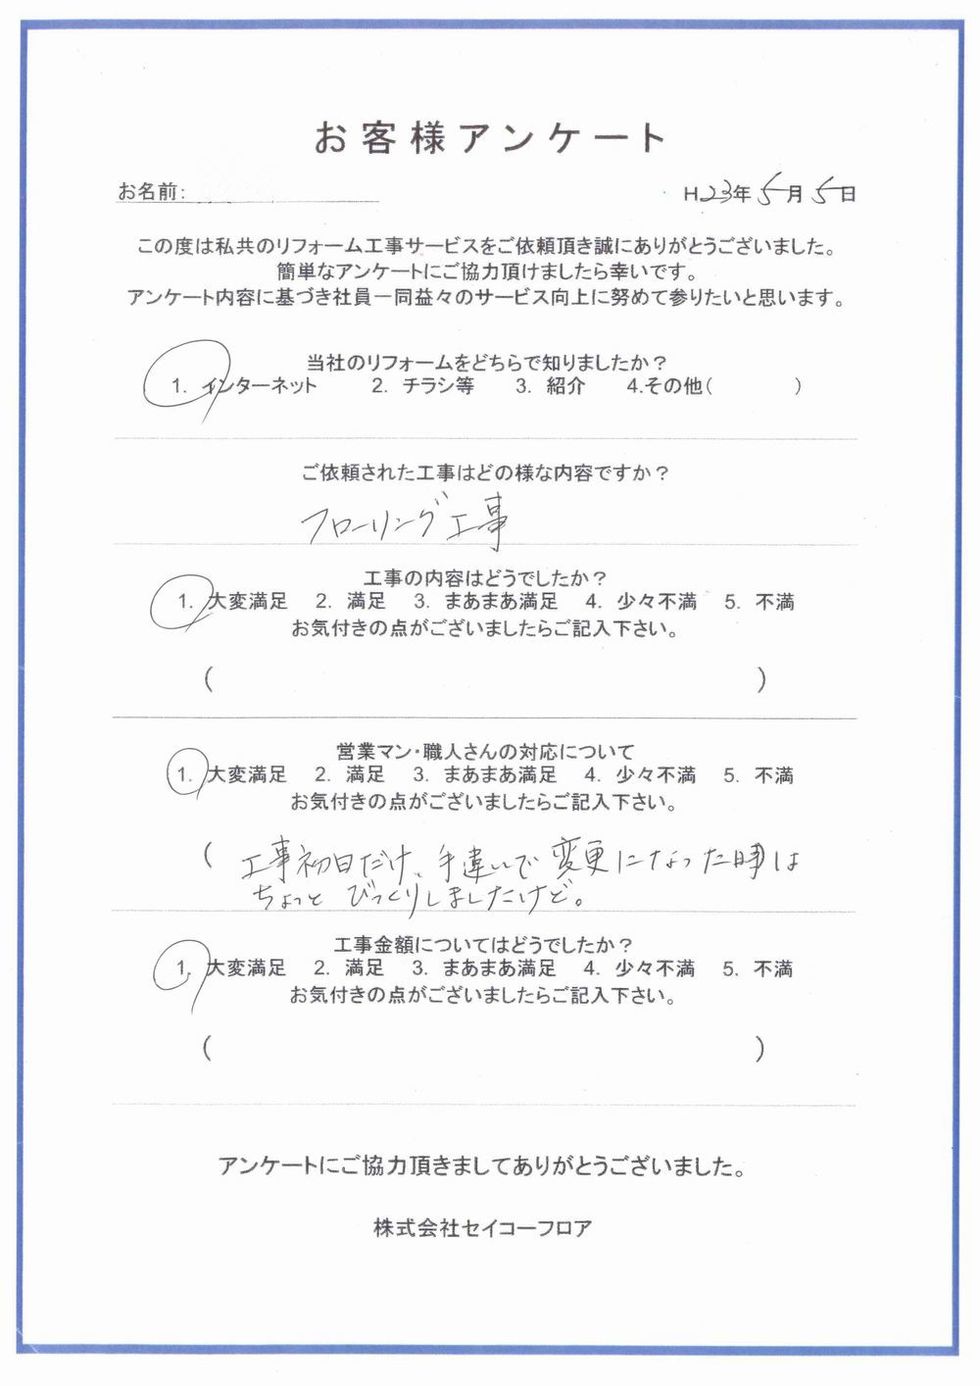 お客様アンケート
お名前: H23年5月5日
この度は私共のリフォーム工事サービスをご依頼頂き誠にありがとうございました。
簡単なアンケートにご協力頂けましたら幸いです。
アンケート内容に基づき社員一同益々のサービス向上に努めて参りたいと思います。
当社のリフォームをどちらで知りましたか？
1. インターネット 2. チラシ等 3. 紹介 4.その他( )
ご依頼された工事はどの様な内容ですか？
フローリング工事
工事の内容はどうでしたか？
1. 大変満足 2. 満足 3. まあまあ満足 4. 少々不満 5. 不満
お気付きの点がございましたらご記入下さい。
( )
営業マン・職人さんの対応について
1. 大変満足 2. 満足 3. まあまあ満足 4. 少々不満 5. 不満
お気付きの点がございましたらご記入下さい。
( 工事初日だけ、手違いで変更になった時は
ちょっとびっくりしましたけど。
工事金額についてはどうでしたか？
1. 大変満足 2. 満足 3. まあまあ満足 4. 少々不満 5. 不満
お気付きの点がございましたらご記入下さい。
( )
アンケートにご協力頂きましてありがとうございました。
株式会社セイコーフロア